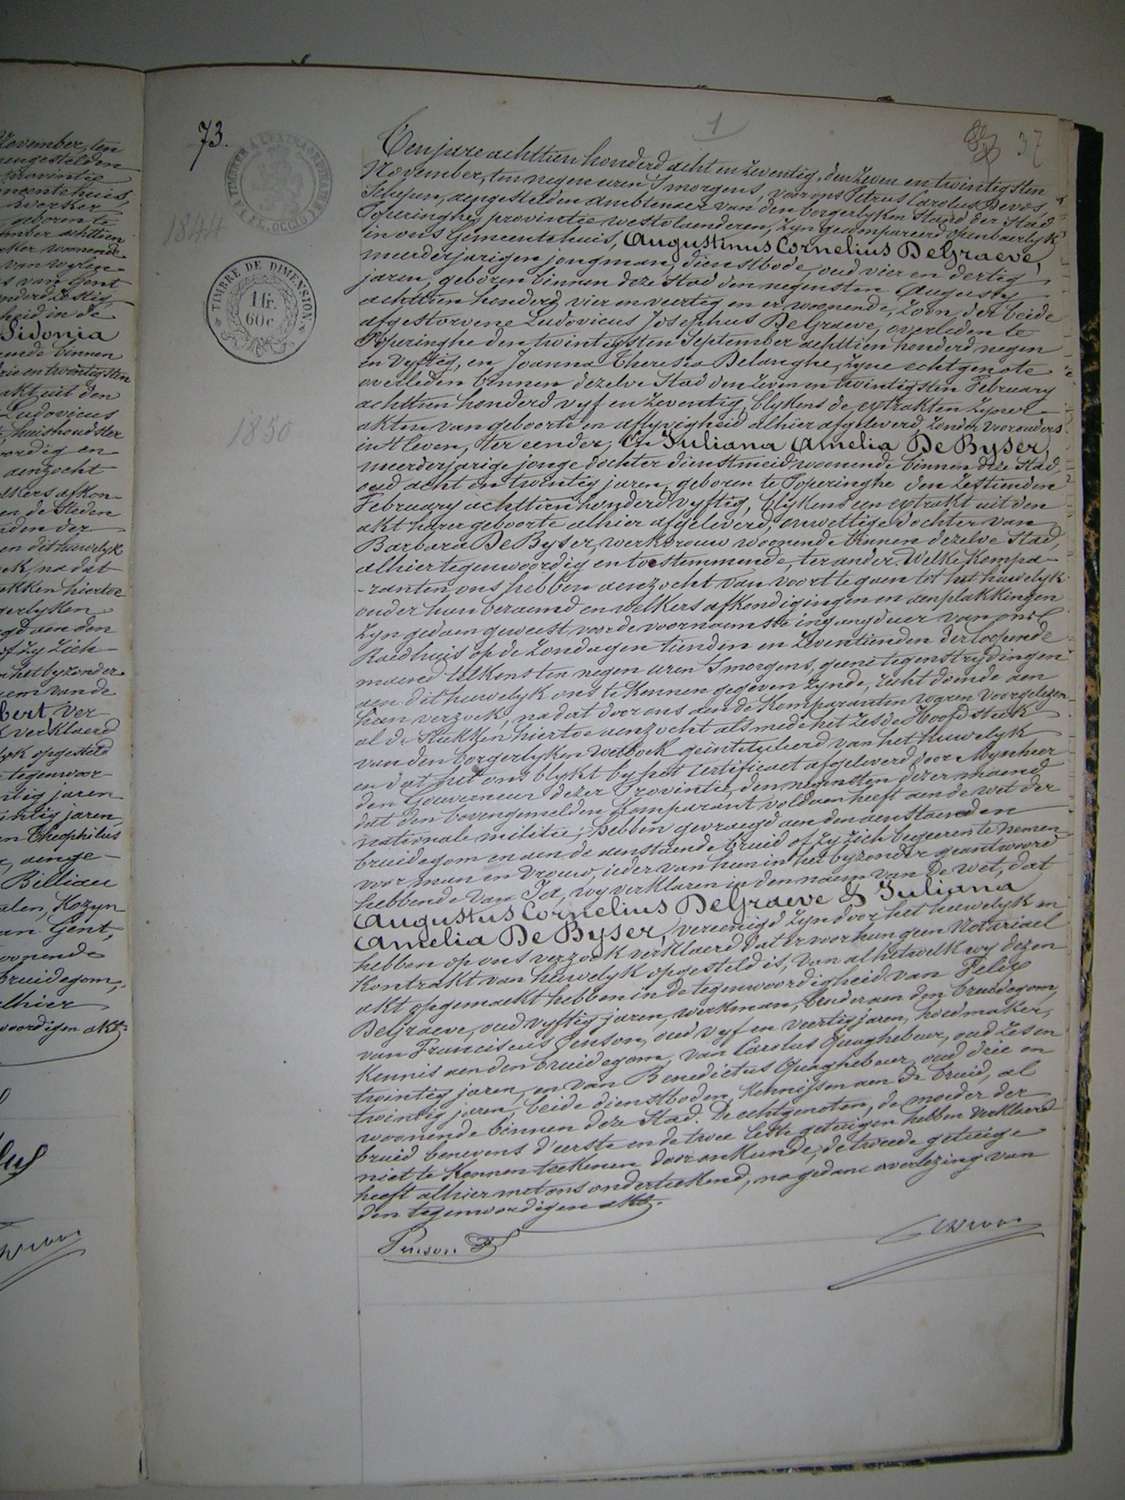 November, ten
aengestelden
provintie
meentehuis
geboren te
ember achttien
woonende
van wylen
van Gent
honderd zestig
heid in de
Sidonia
binnen
en twintigsten
akt uit den
Ludovicus
huishoudster
voordig en
aenzocht
elkers afkon-
en de Steden
den der
en dit huwelyk
ek, na dat
ukken hiertoe
gerlyken
aen den
of zy zich
het byzonder
naem van de
bert, ver-
verklaerd
lyk opgesteld
tegenwoor-
ntig jaren
chtig jaren
Theophilus
aenge-
Billiau
Kozyn
van Gent,
woonende
bruidegom,
alhier
woordigen akt
73.
1
37
1844
TIMBRE DE DIMENSION
1 fr.
60 c
1850
Ten jare achttien honderd acht en zeventig, den zeven en twintigsten
November, ten negen uren 's morgens, voor ons Petrus Carolus Devos,
Schepen, aengestelden ambtenaer van den borgerlyken Stand der Stad
Poperinghe, provintie westvlaenderen, zyn gecompareerd openbaerlyk
in ons Gemeentehuis, Augustinus Cornelius DeGraeve,
meerderjarigen jongman, dienstbode, oud vier en dertig
jaren, geboren binnen deze Stad den negensten Augusty
achttien honderd vier en veertig en er woonende, zoon der beide
afgestorvene Ludovicus Josephus DeGraeve, overleden te
Poperinghe den twintigsten September achttien honderd negen
en vyftig, en Joanna Theresia Delanghe, zyne echtgenote
overleden binnen dezelve Stad den zeven en twintigsten February
achttien honderd vyf en zeventig, blykens de extrakten zyner
akten van geboorte en aflyvigheid alhier afgeleverd, zonder voorouders
in 't leven, ter eender; En Juliana Amelia DeByser,
meerderjarige jonge dochter dienstmeid woonende binnen deze Stad
oud acht en twintig jaren, geboren te Poperinghe den zestienden
February achttien honderd vyftig, blykens een extrakt uit den
akt harer geboorte alhier afgeleverd, onwettige dochter van
Barbara DeByser, werkvrouw woonende binnen dezelve Stad,
alhier tegenwoordig en toestemmende, ter ander. Welke kompa-
-ranten ons hebben aenzocht van voort te gaen tot het huwelyk
onder hun beraemd en welkers afkondigingen en aenplakkingen
zyn gedaen geweest voor de voornaemste ingangdeur van ons
Raedhuis op de zondagen tienden en zeventienden der loopende
maend telkens ten negen uren 's morgens, geene tegenstrydingen
aen dit huwelyk ons te kennen gegeven zynde, recht doende aen
hun verzoek, na dat door ons aen de komparanten waren voorgelezen
al de stukken hiertoe aenzocht alsmede het zesde Hoofdstuk
van den borgerlyken Wetboek geïntituleerd van het Huwelyk
en dat het ons blykt by het certificaet afgeleverd door Mynheer
den Gouverneur dezer Provintie, den negensten dezer maend
dat den bovengemelden komparant voldaen heeft aen de wet der
nationale militie; Hebben gevraegd aen den aenstaenden
bruidegom en aen de aenstaende bruid of zy zich begeeren te nemen
voor man en vrouw, ieder van hun in het byzonder geantwoord
hebbende Van Ja, wy verklaren in den naem van de wet, dat
Augustus Cornelius DeGraeve & Juliana
Amelia DeByser, vereenigd zyn door het huwelyk en
hebben op ons verzoek verklaerd dat er voor hun geen Notariael
kontrakt van huwelyk opgesteld is, van al hetwelk wy dezen
akt opgemaekt hebben in de tegenwoordigheid van Felix
DeGraeve, oud vyftig jaren, werkman, broeder aen den bruidegom,
van Franciscus Penson, oud vyf en veertig jaren, hoedmaker,
kennis aen den bruidegom, van Carolus Quaghebeur, oud zes en
twintig jaren, en van Benedictus Quaghebeur, oud drie en
twintig jaren, beide dienstboden, kennissen aen de bruid, al
woonende binnen deze Stad. De echtgenoten, de moeder der
bruid benevens d'eerste en de twee leste getuigen hebben verklaerd
niet te kennen teekenen door onkunde, de tweede getuige
heeft alhier met ons onderteekend, na gedane overlezing van
den tegenwoordigen akt.
Penson F